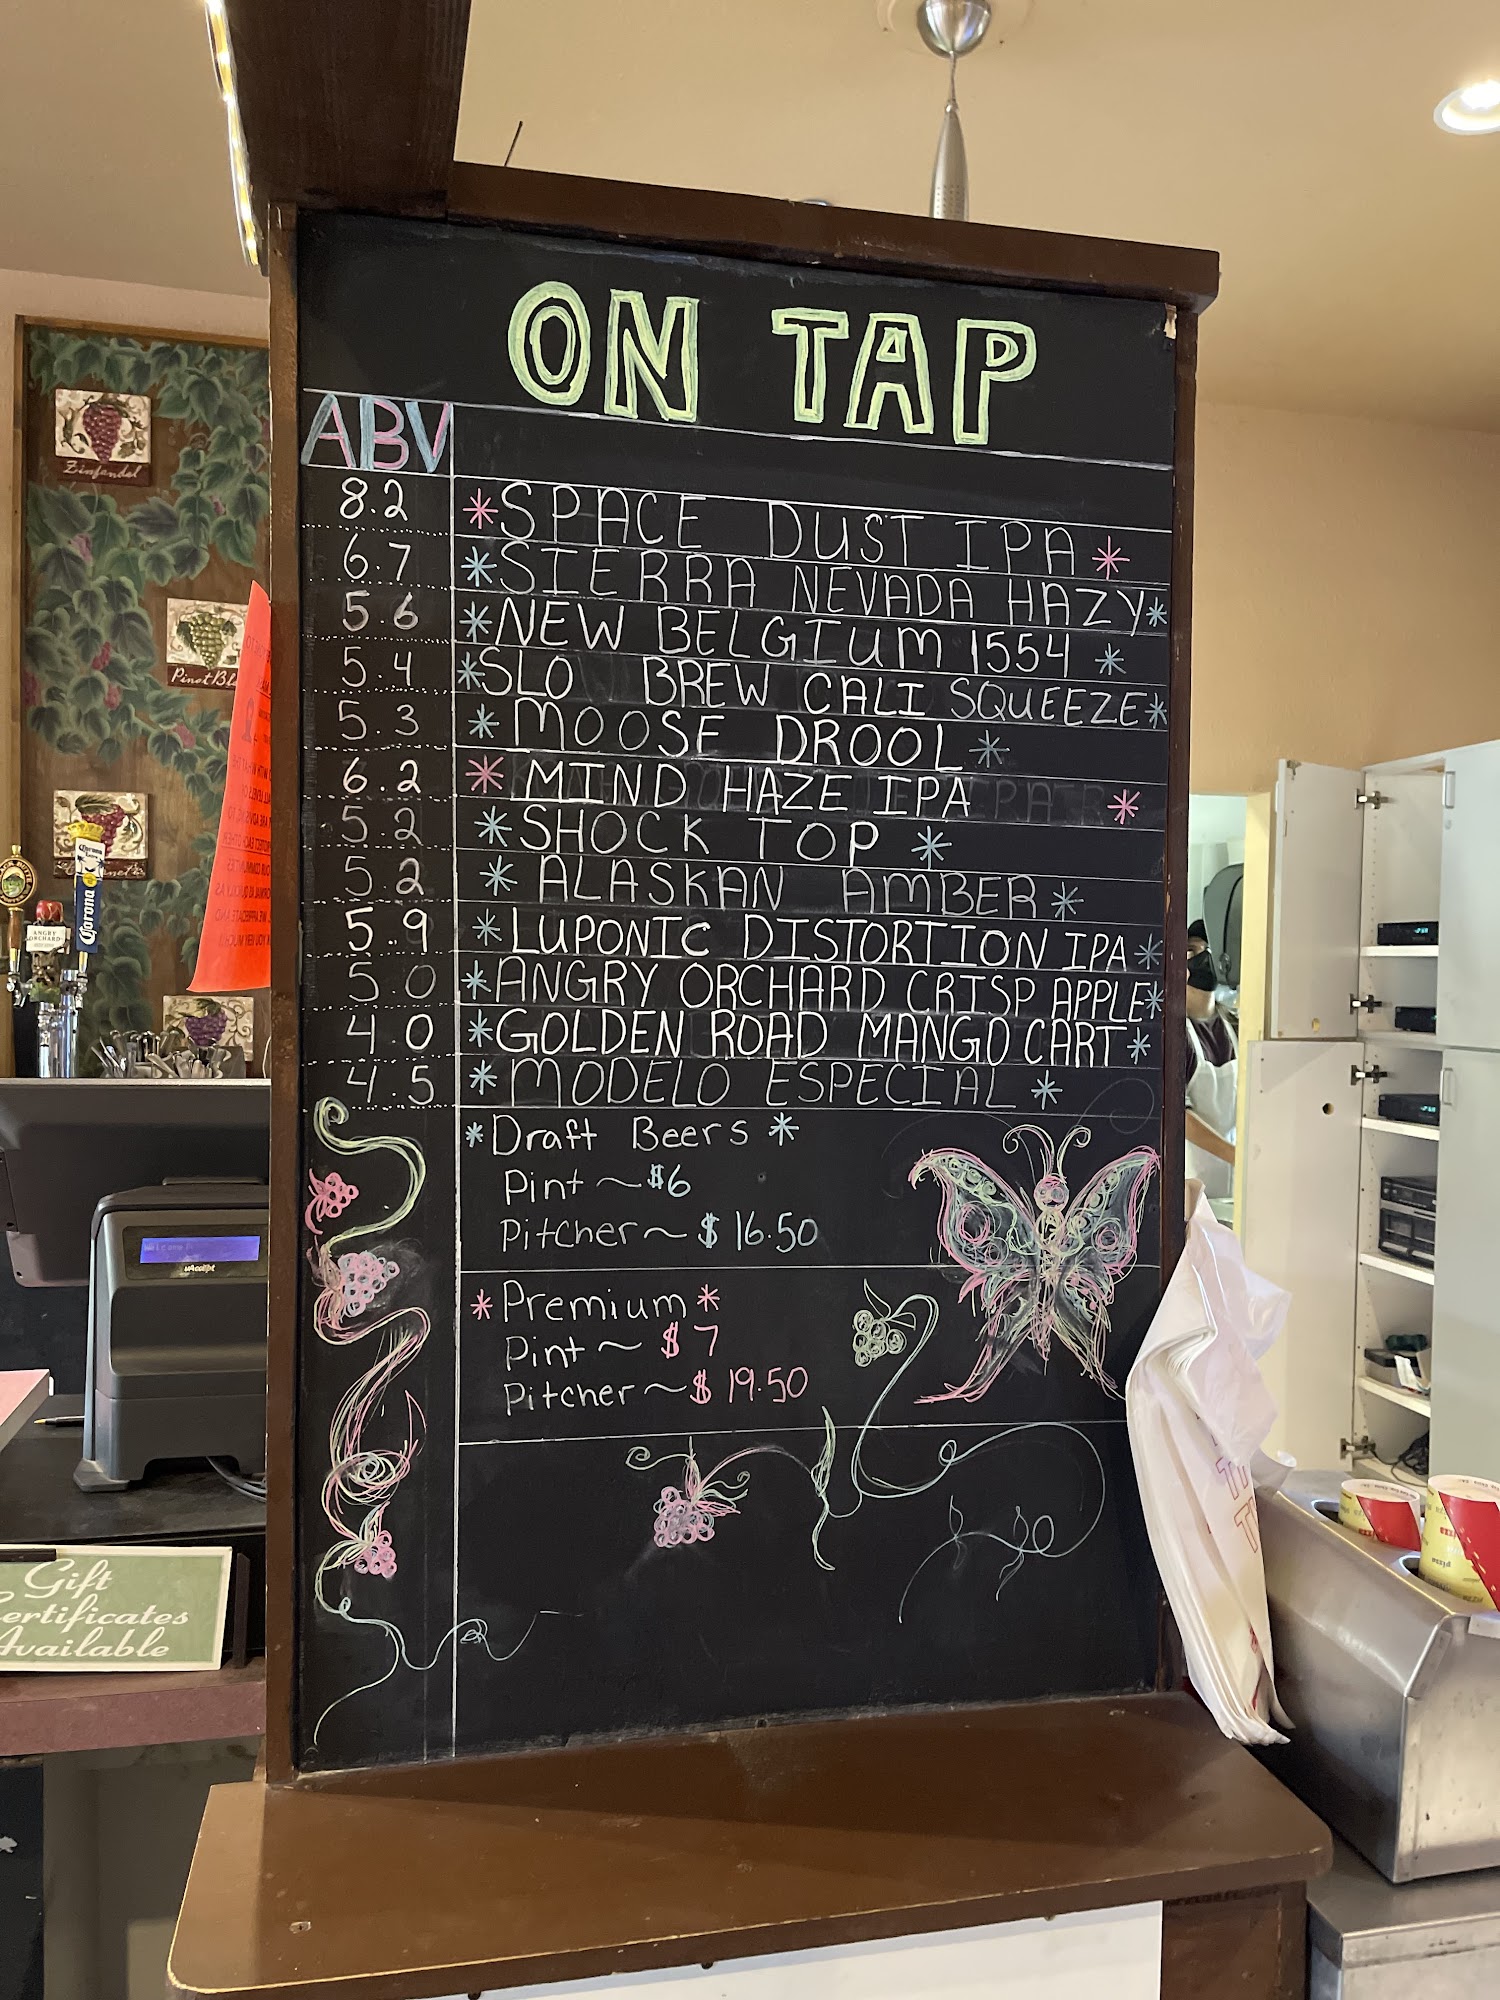 ON TAP
ABV
8.2 *SPACE DUST IPA*
6.7 *SIERRA NEVADA HAZY*
5.6 *NEW BELGIUM 1554 *
5.4 *SLO BREW CALI SQUEEZE*
5.3 * MOOSE DROOL *
6.2 * MIND HAZE IPA *
5.2 * SHOCK TOP *
5.2 * ALASKAN AMBER *
5.9 * LUPONIC DISTORTION IPA *
5.0 *ANGRY ORCHARD CRISP APPLE*
4.0 *GOLDEN ROAD MANGO CART *
4.5 * MODELO ESPECIAL *
*Draft Beers *
Pint ~ $6
Pitcher ~ $ 16.50
*Premium*
Pint ~ $ 7
Pitcher ~ $ 19.50
Zinfandel
Corona
ANGRY
ORCHARD
Gift
Certificates
Available